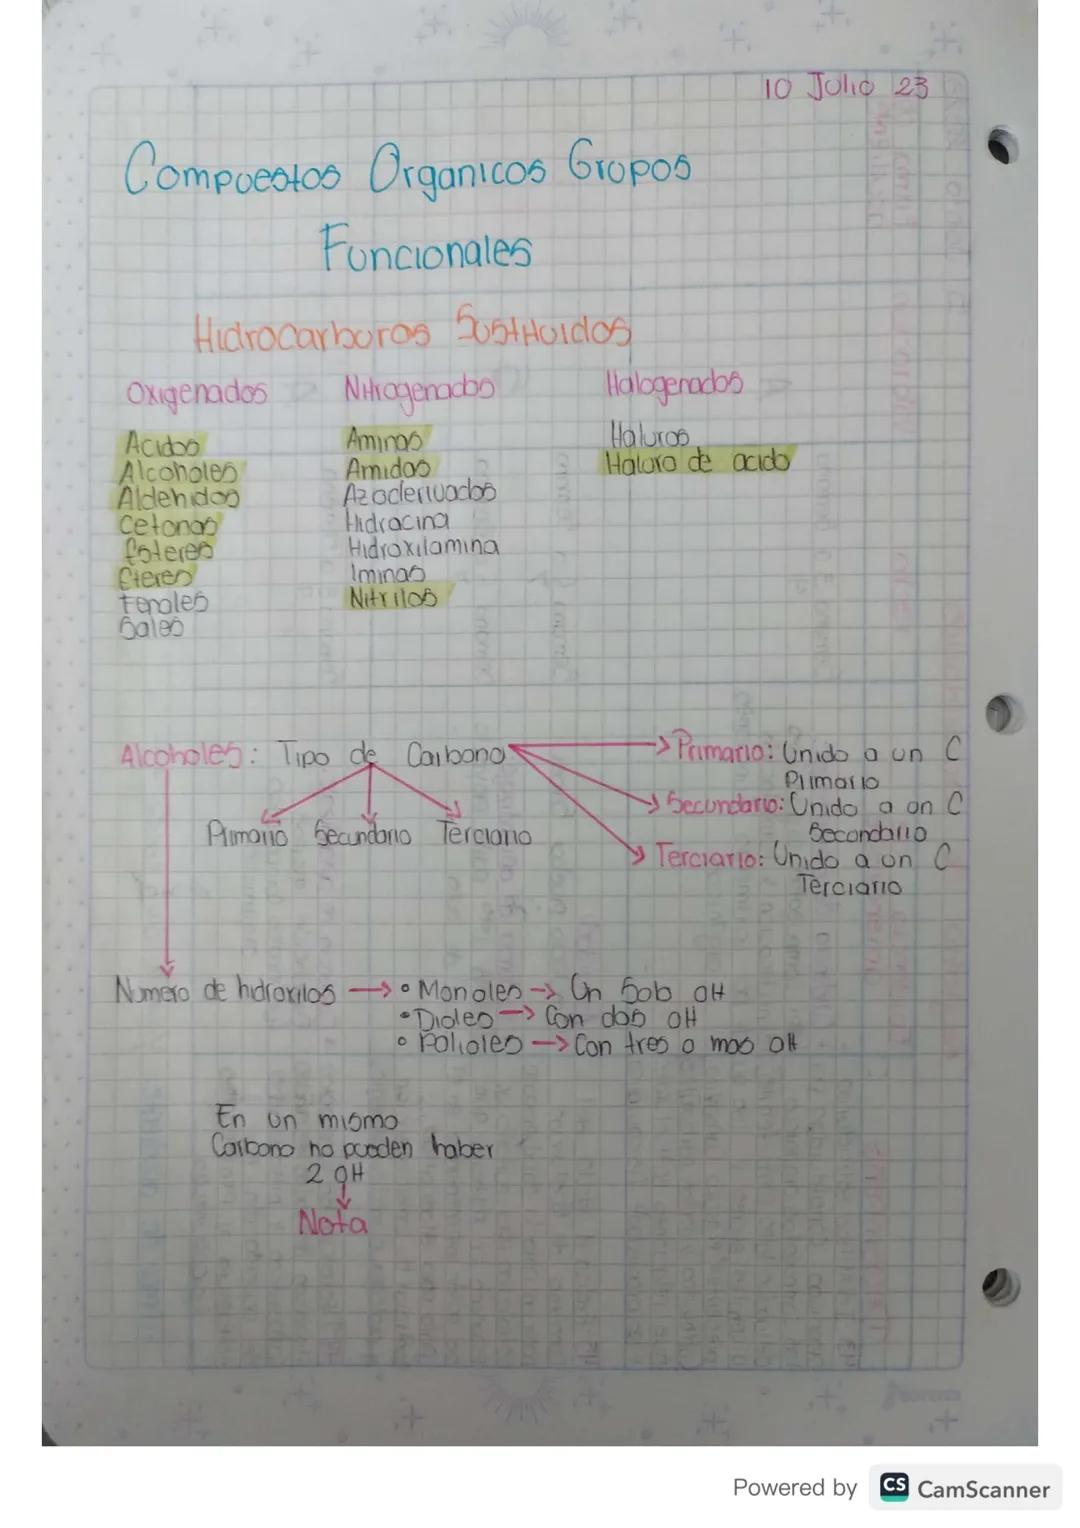 10 Julio 23
Compuestos Organicos Grupos
Funcionales
Hidrocarburos Sustituidos
Oxigenados Nitrogenados Halogenados
Acidos Aminas Haluros
Alcoholes Amidas Haluro de acido
Aldehidos Azoderivados
Cetonas Hidracina
Esteres Hidroxilamina
Eteres Iminas
Fenoles Nitrilos
Sales
Alcoholes: Tipo de Carbono → Primario: Unido a un C
Primario
→ Secundario: Unido a un C
Primario Secundario Terciario Secundario
→ Terciario: Unido a un C
Terciario
Numero de hidroxilos → • Monoles → Un Solo OH
• Dioles → Con dos OH
• Polioles → Con tres o mas OH
En un mismo
Carbono no pueden haber
2 OH
Nota
Powered by CS CamScanner